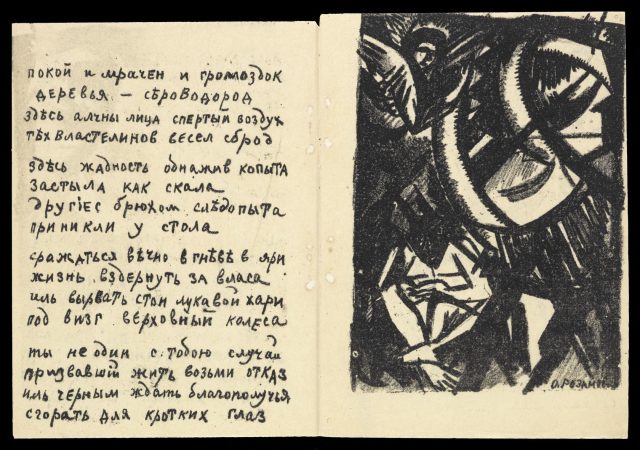 покой и мрачен и громоздок
деревья — сѣроводород
здѣсь алчны лица спертый воздух
тѣх властелинов весел сброд
здѣсь жадность обнажив копыта
застыла как скала
другіес брюхом слѣдопыта
приникли у стола
сражаться вѣчно в гнѣвѣ в яри
жизнь вздернуть за власа
иль вырвать стон лукавой хари
под визг верховный колеса
ты не один с тобою случай
призвавшій жить возьми отказ
иль черным ждать благополучья
сгорать для кротких глаз
О. Розанов